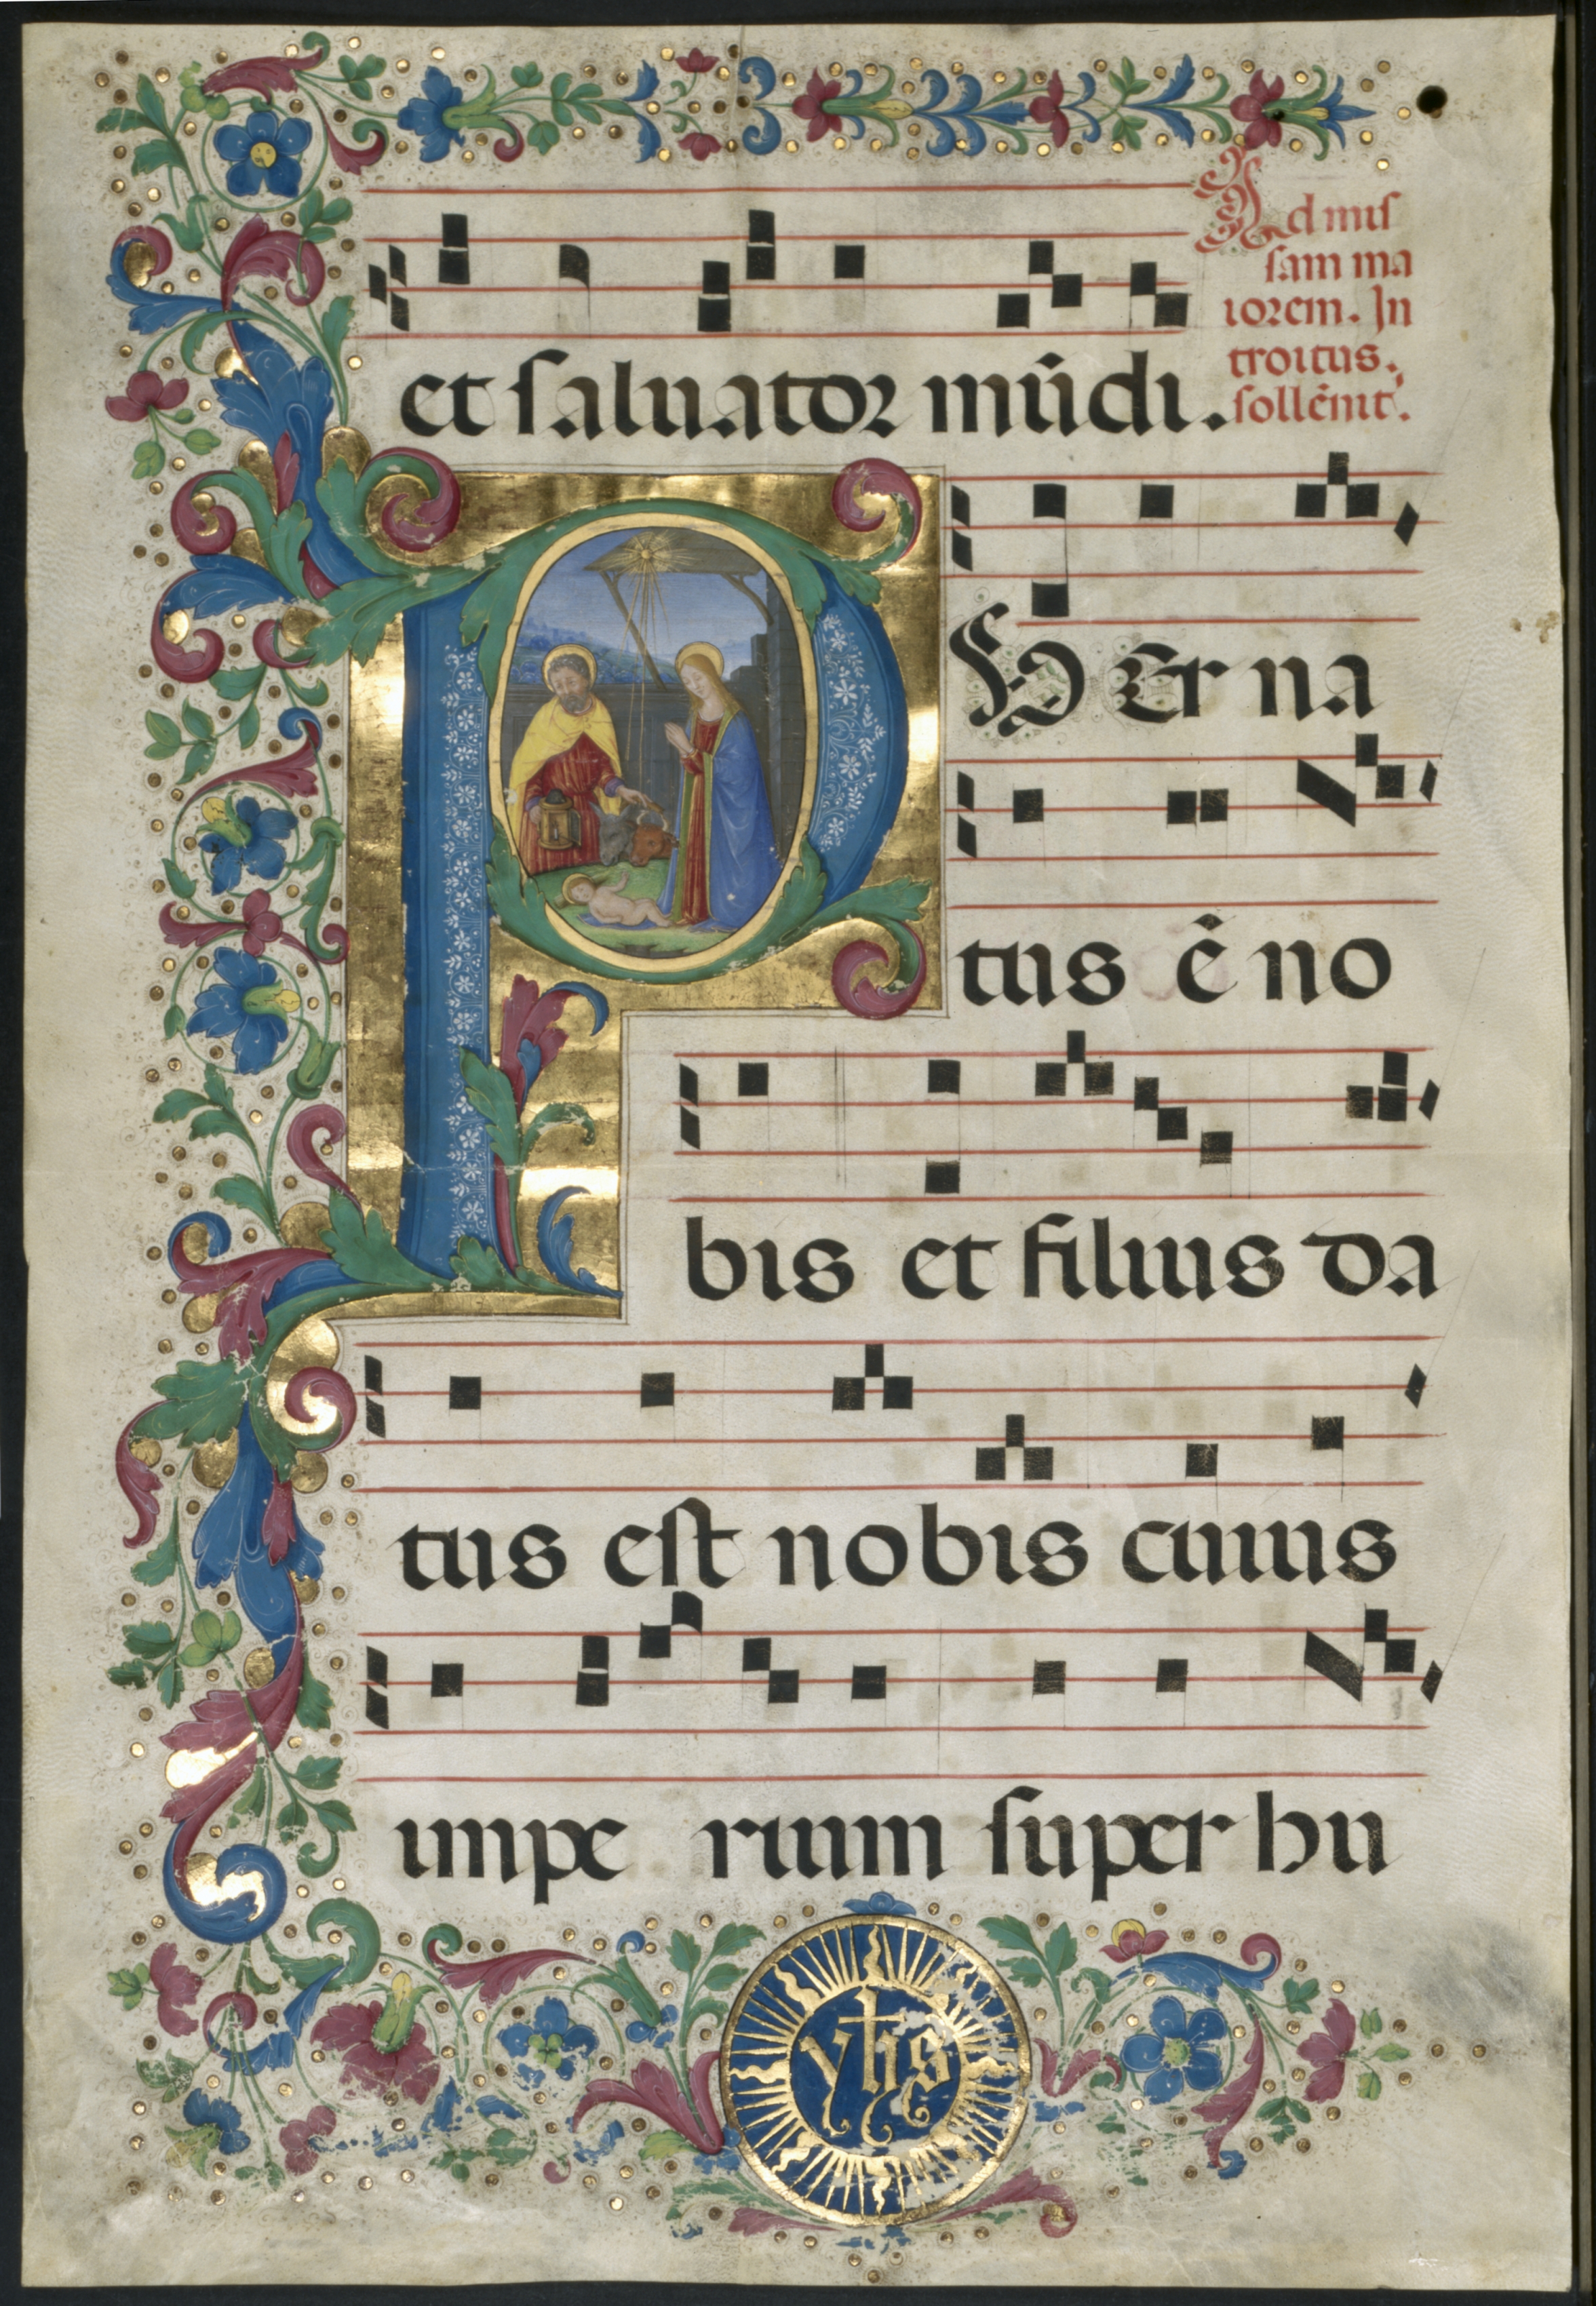 et saluator mũdi.
Ad mis
sam ma
iorem. In
troitus.
sollẽnit̃.
PUEr na
tus ẽ no
bis et filius da
tus est nobis cuius
impe rium super hu
yhs